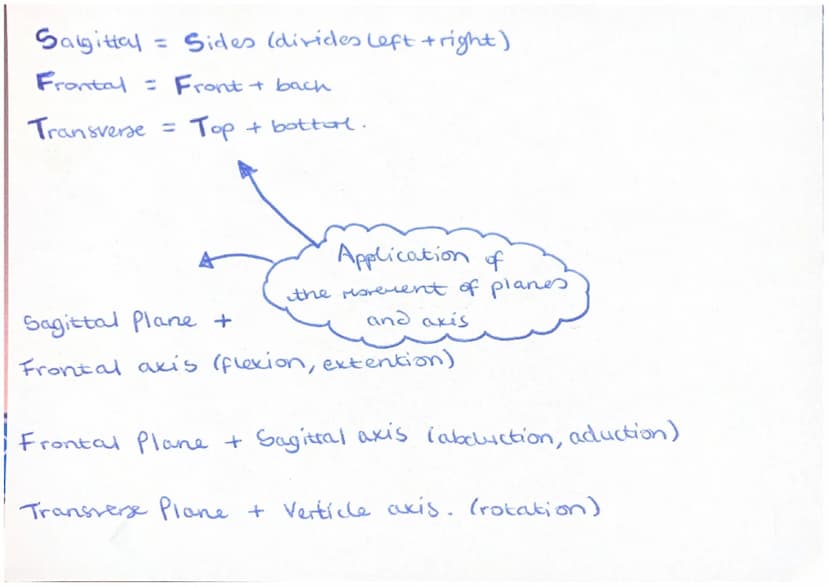 Salgittal = Sides (divides left + right)
Frontal = Front + back
Transverse = Top + bottom.
Application of
the movement of planes
and axis
Sagittal Plane +
Frontal axis (flexion, extention)
Frontal Plane + Sagittal axis (abduction, aduction)
Transverse Plane + Verticle axis. (rotation)